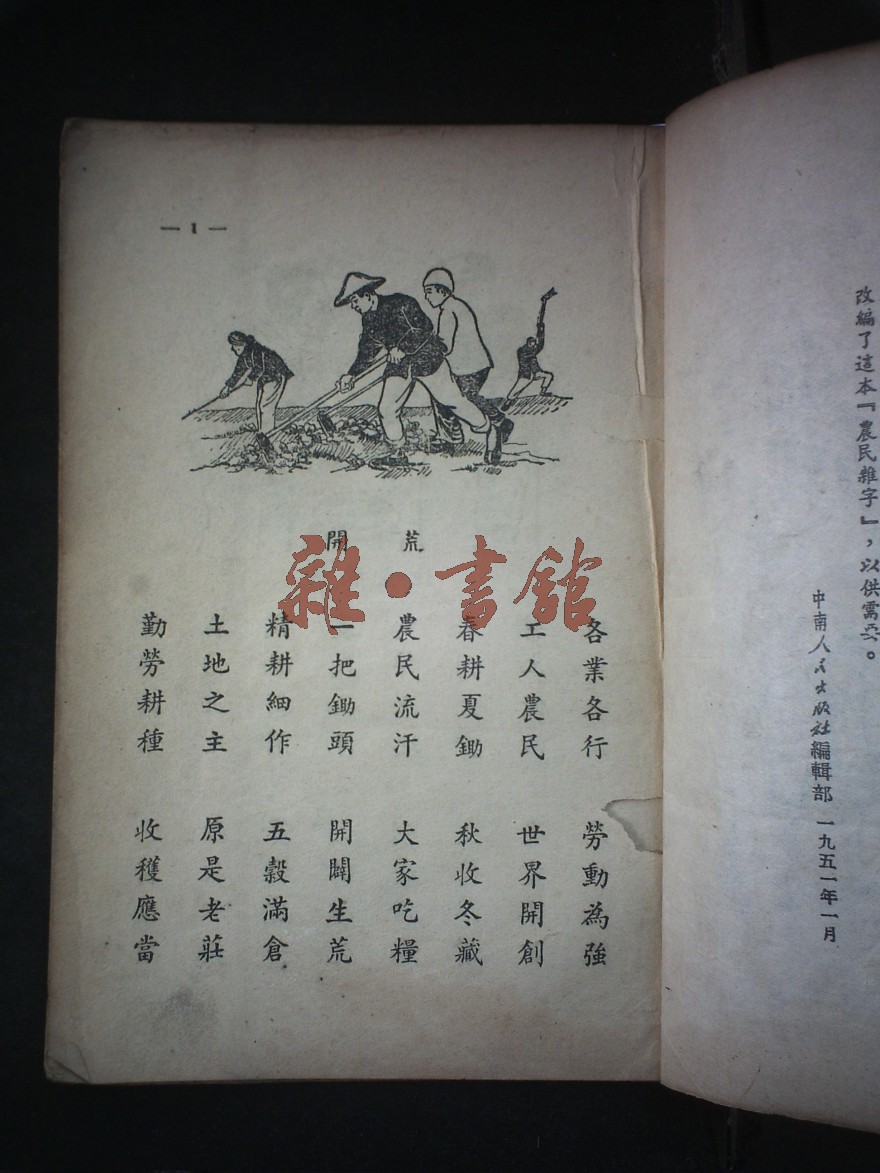 改編了這本『農民雜字』，以供需要。
中南人民出版社編輯部 一九五一年一月
— 1 —
開荒
各業各行 勞動為強
工人農民 世界開創
春耕夏鋤 秋收冬藏
農民流汗 大家吃糧
一把鋤頭 開闢生荒
精耕細作 五穀滿倉
土地之主 原是老莊
勤勞耕種 收穫應當
雜·書館